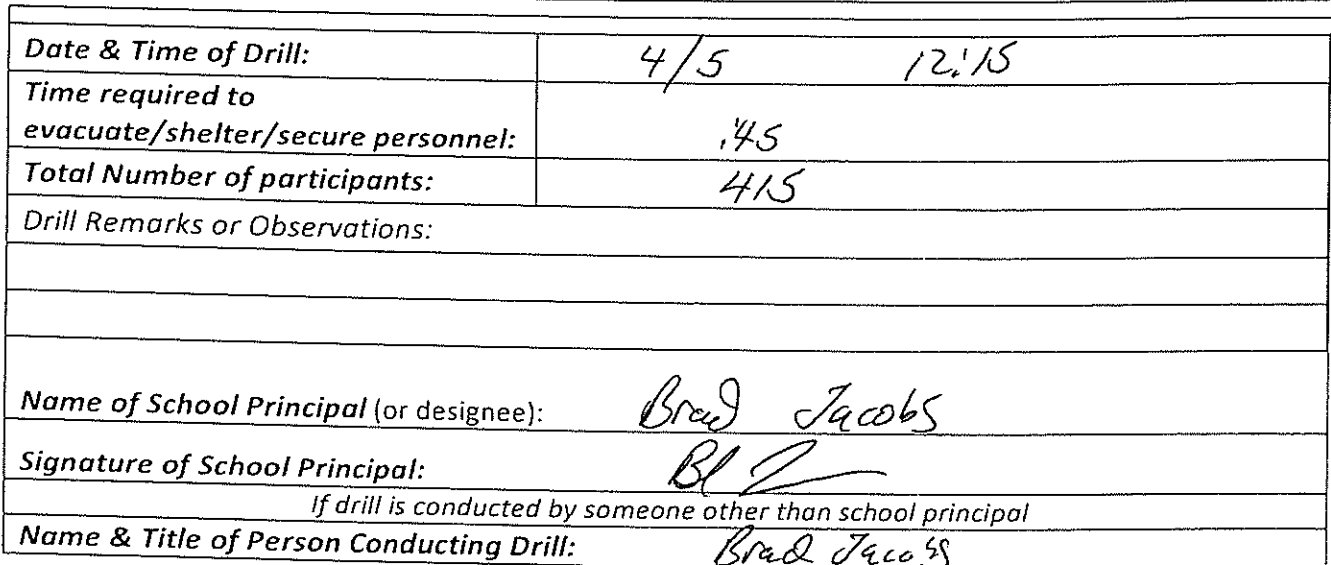 Date & Time of Drill: 4/5 12:15
Time required to
evacuate/shelter/secure personnel: .45
Total Number of participants: 415
Drill Remarks or Observations:
Name of School Principal (or designee): Brad Jacobs
Signature of School Principal:
If drill is conducted by someone other than school principal
Name & Title of Person Conducting Drill: Brad Jacobs